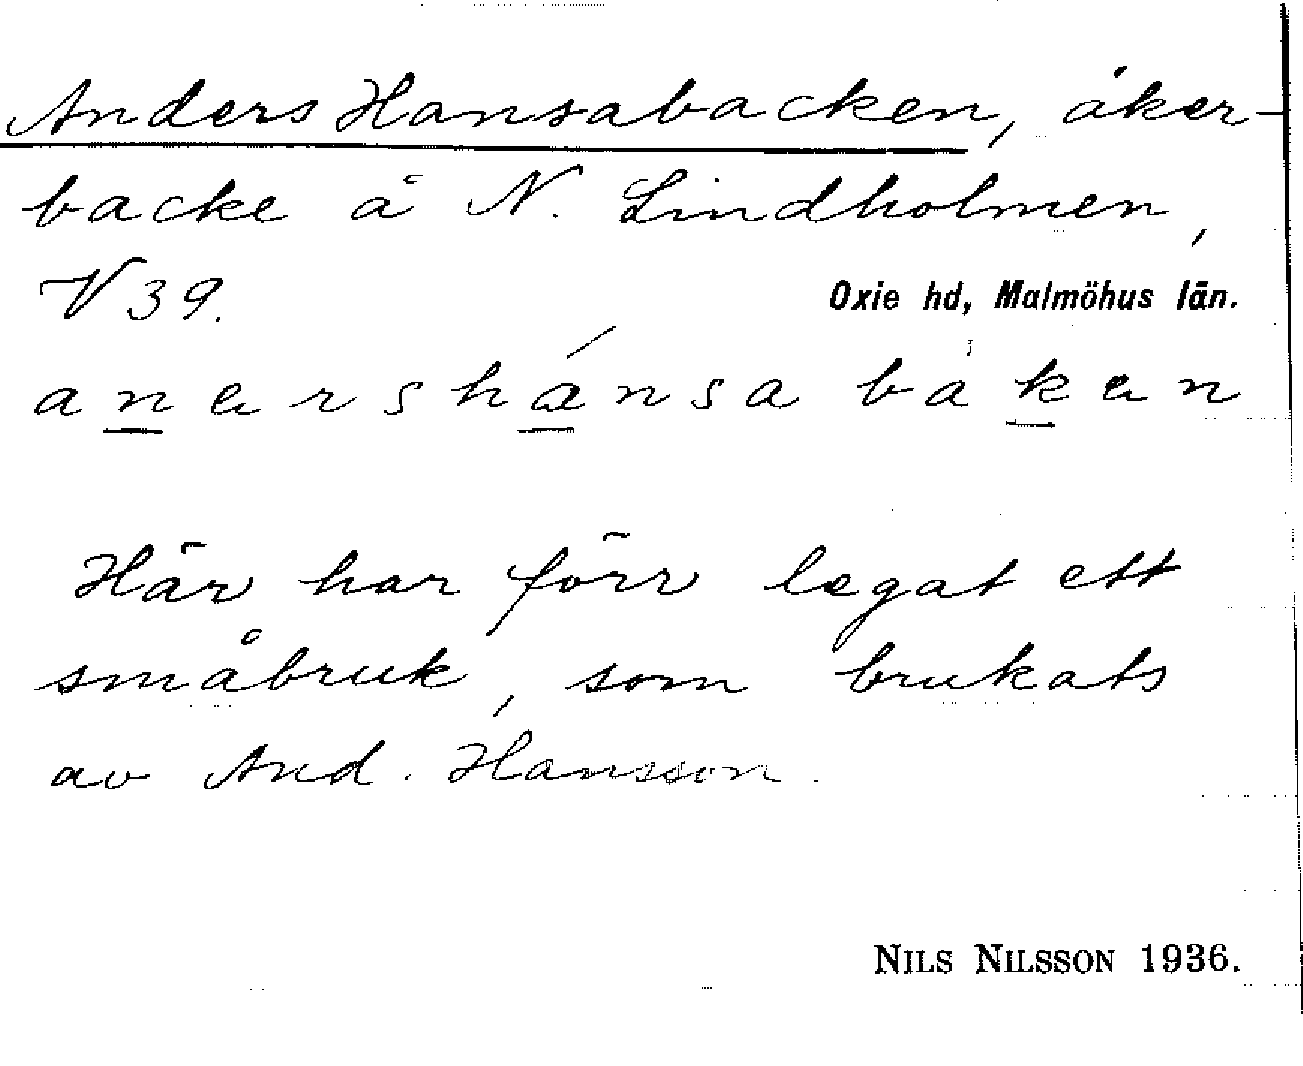 Anders Hansabacken, åker-
backe å N. Lindholmen,
V 39. Oxie hd, Malmöhus län.
anershánsa baken
Här har förr legat ett
småbruk, som brukats
av And. Hansson.
NILS NILSSON 1936.